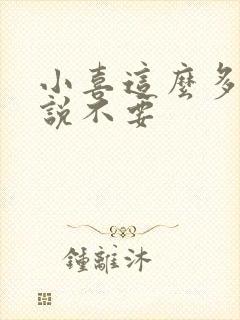 小喜這麼多
說不要
鍾離沐